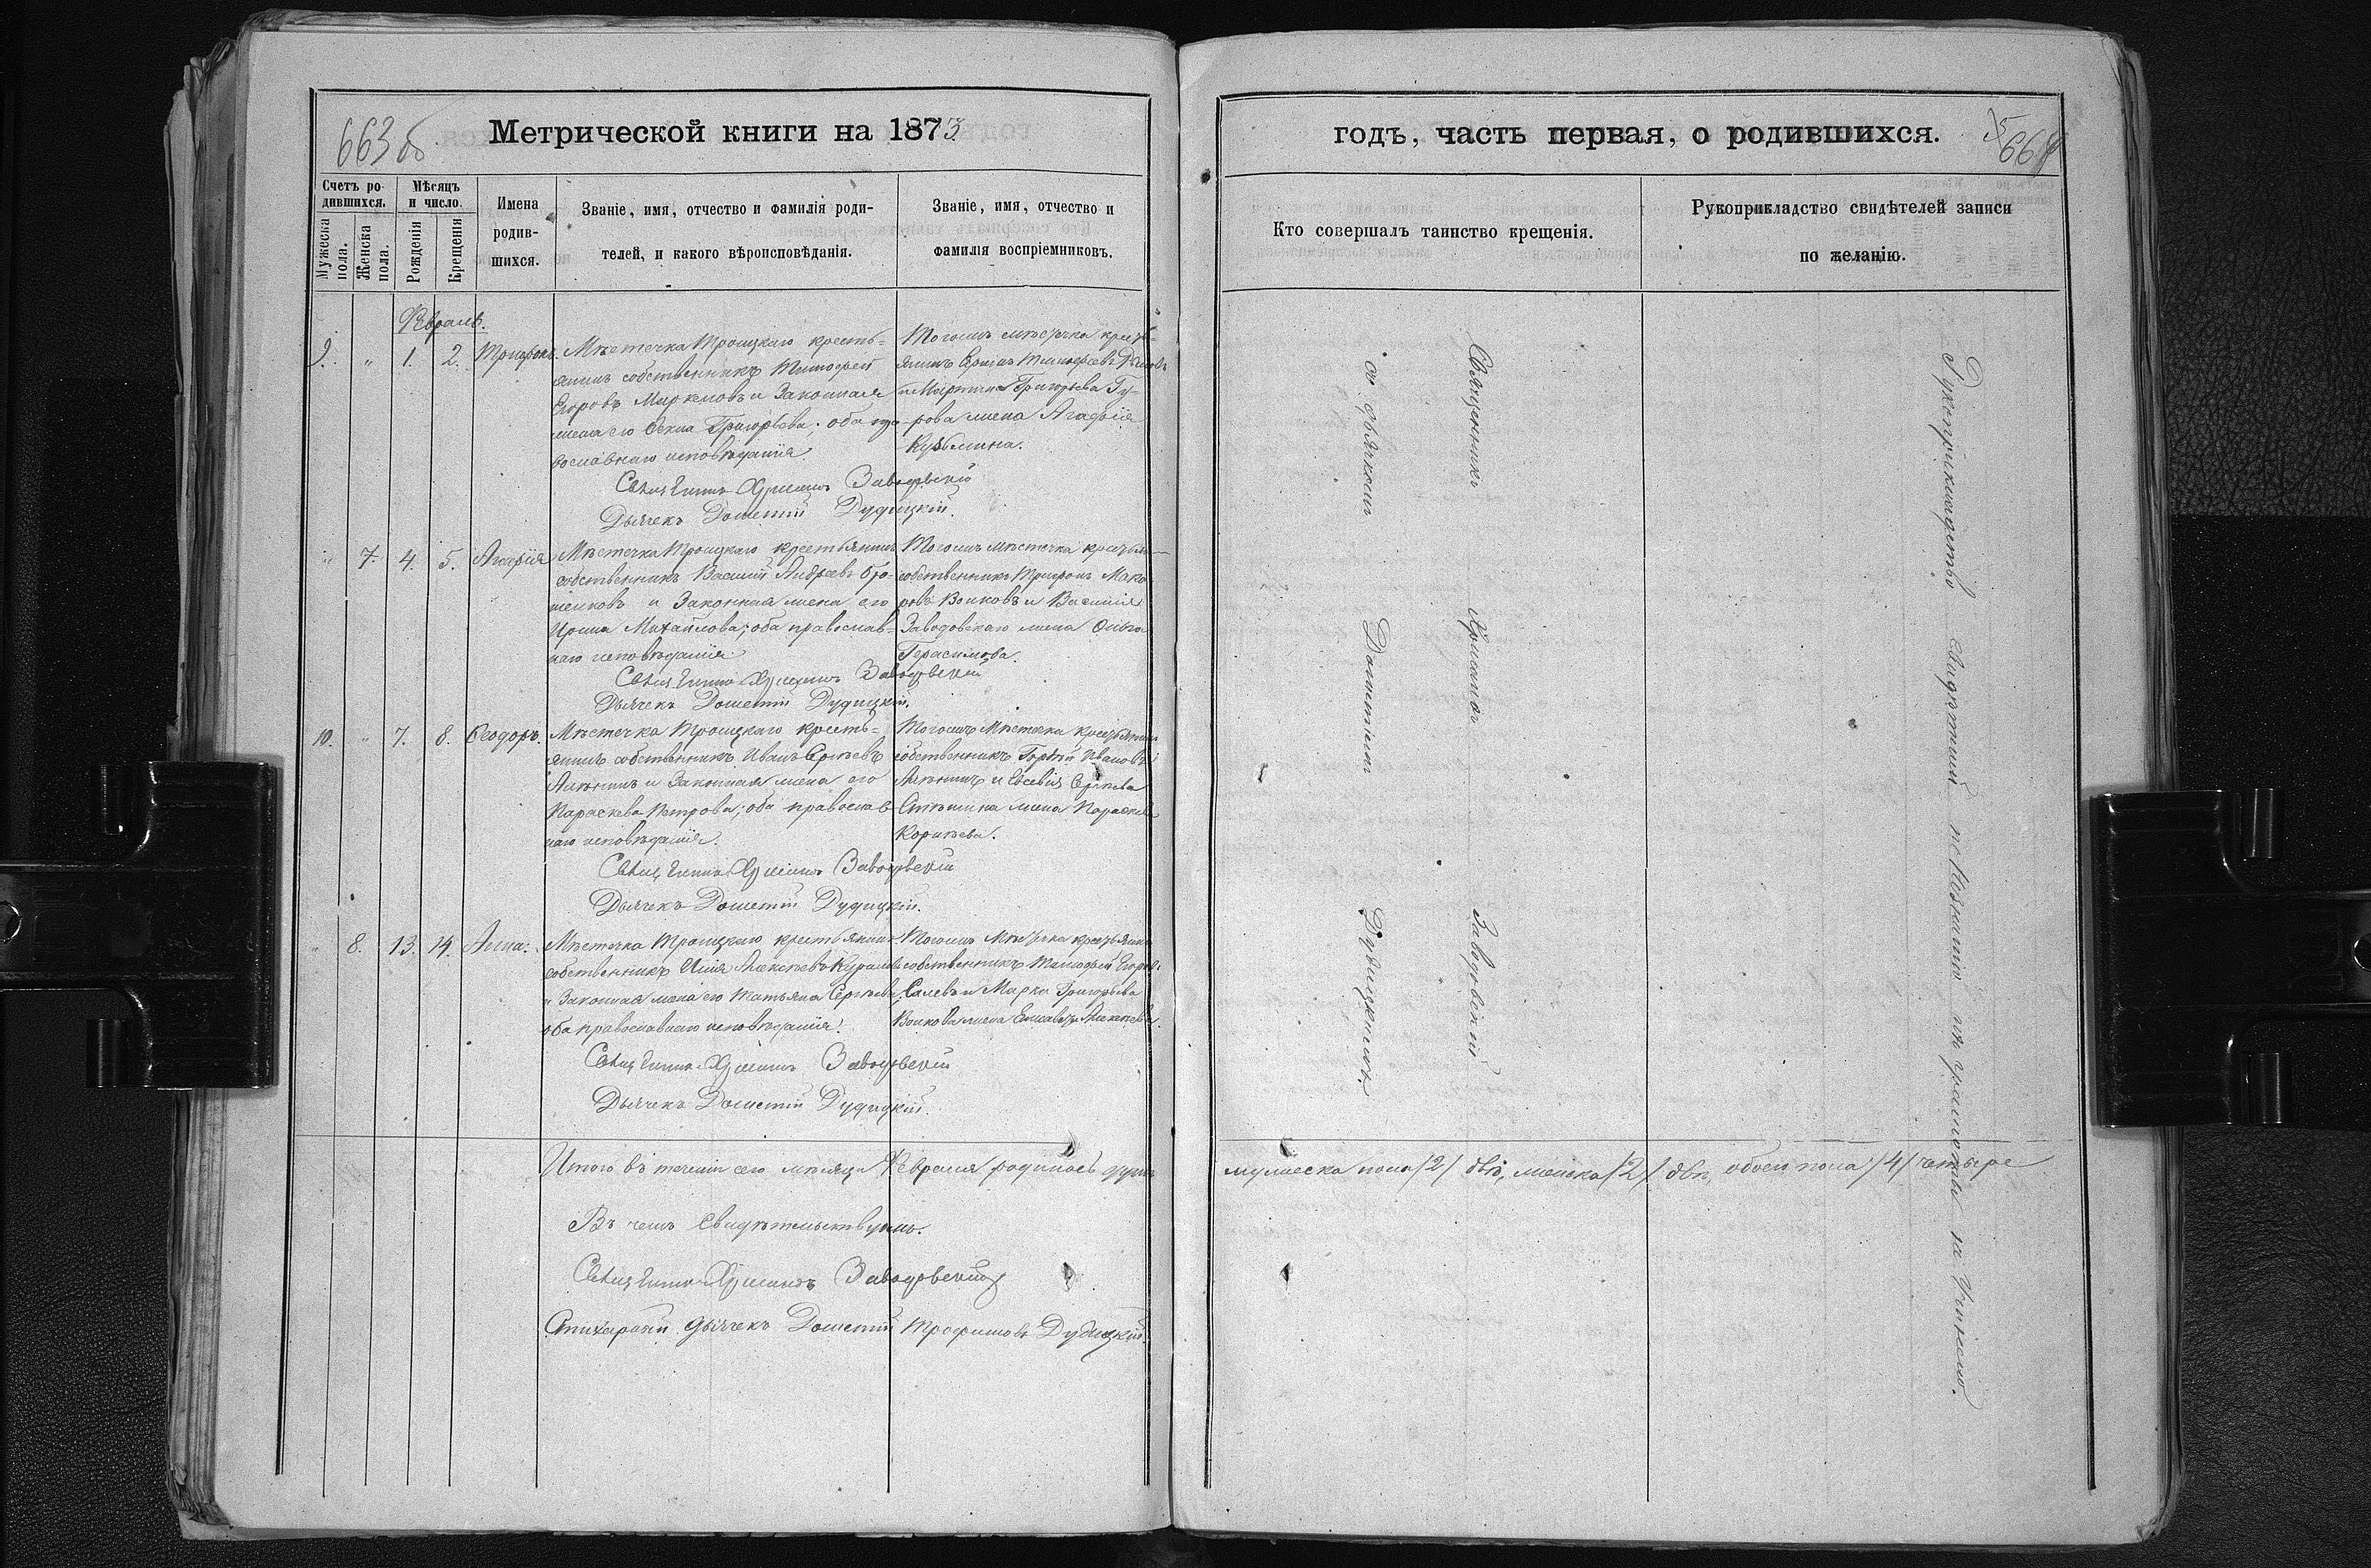 663 об
Метрической книги на 1873
Счетъ родившихся.
Мѣсяцъ и число.
Имена родившихся.
Званіе, имя, отчество и фамилія родителей, и какого вѣроисповѣданія.
Званіе, имя, отчество и фамилія воспріемниковъ.
Мужеска пола.
Женска пола.
Рожденія
Крещенія
Февраль.
9. " 1. 2. Трифонъ.
Мѣстечка Троицкаго кресть-
янинъ собственникъ Тимофей
Егоровъ и законная
жена его Григорьева; оба пра-
вославнаго исповѣданія.
Тогожъ мѣстечка кресть-
янинъ Тимофеевъ
и Мартина Григорьева Гу-
рова жена Агафія
Кузьмина.
Священникъ Заводовскій
Дьячекъ Дометій Дудицкій.
" 7. 4. 5. Агафія
Мѣстечка Троицкаго крестьянинъ
собственникъ Василій Андреевъ
и законная жена его
Ирина Михайлова; оба православ-
наго исповѣданія.
Тогожъ мѣстечка крестьян
собственникъ Трифонъ Мака
ровъ Волковъ и Василія
Заводовскаго жена Ольга
Герасимова.
Священникъ Заводовскій
Дьячекъ Дометій Дудицкій.
10. " 7. 8. Ѳеодоръ.
Мѣстечка Троицкаго кресть-
янинъ собственникъ Иванъ Сергѣевъ
и законная жена его
Параскева Петрова; оба православ-
наго исповѣданія.
Тогожъ мѣстечка крестьянинъ
собственникъ Ивановъ
и Евсевія Сергѣева
жена Параскева
Корнѣева.
Священникъ Заводовскій
Дьячекъ Дометій Дудицкій.
" 8. 13. 14. Анна.
Мѣстечка Троицкаго крестьянинъ
собственникъ Илія Алексѣевъ
и законная жена его Татьяна Сергѣева;
оба православнаго исповѣданія.
Тогожъ мѣстечка крестьянинъ
собственникъ Тимофей Егоровъ
и Марка Григорьева
Волкова жена Елисавета Алексѣева.
Священникъ Заводовскій
Дьячекъ Дометій Дудицкій.
Итого въ теченіи сего мѣсяца Февраля родилось
Въ чемъ свидѣтельствуемъ.
Священникъ Заводовскій
Стихарный дьячекъ Дометій Трофимовъ Дудицкій.
годъ, часть первая, о родившихся.
664
Кто совершалъ таинство крещенія.
Рукоприкладство свидѣтелей записи по желанію.
Священникъ Заводовскій
съ дьячкомъ Дометіемъ Дудицкимъ.
Рукоприкладство свидѣтелей по незнанію ими грамоты не учинено.
мужеска пола /2/ два, женска /2/ двѣ, обоего пола /4/ четыре